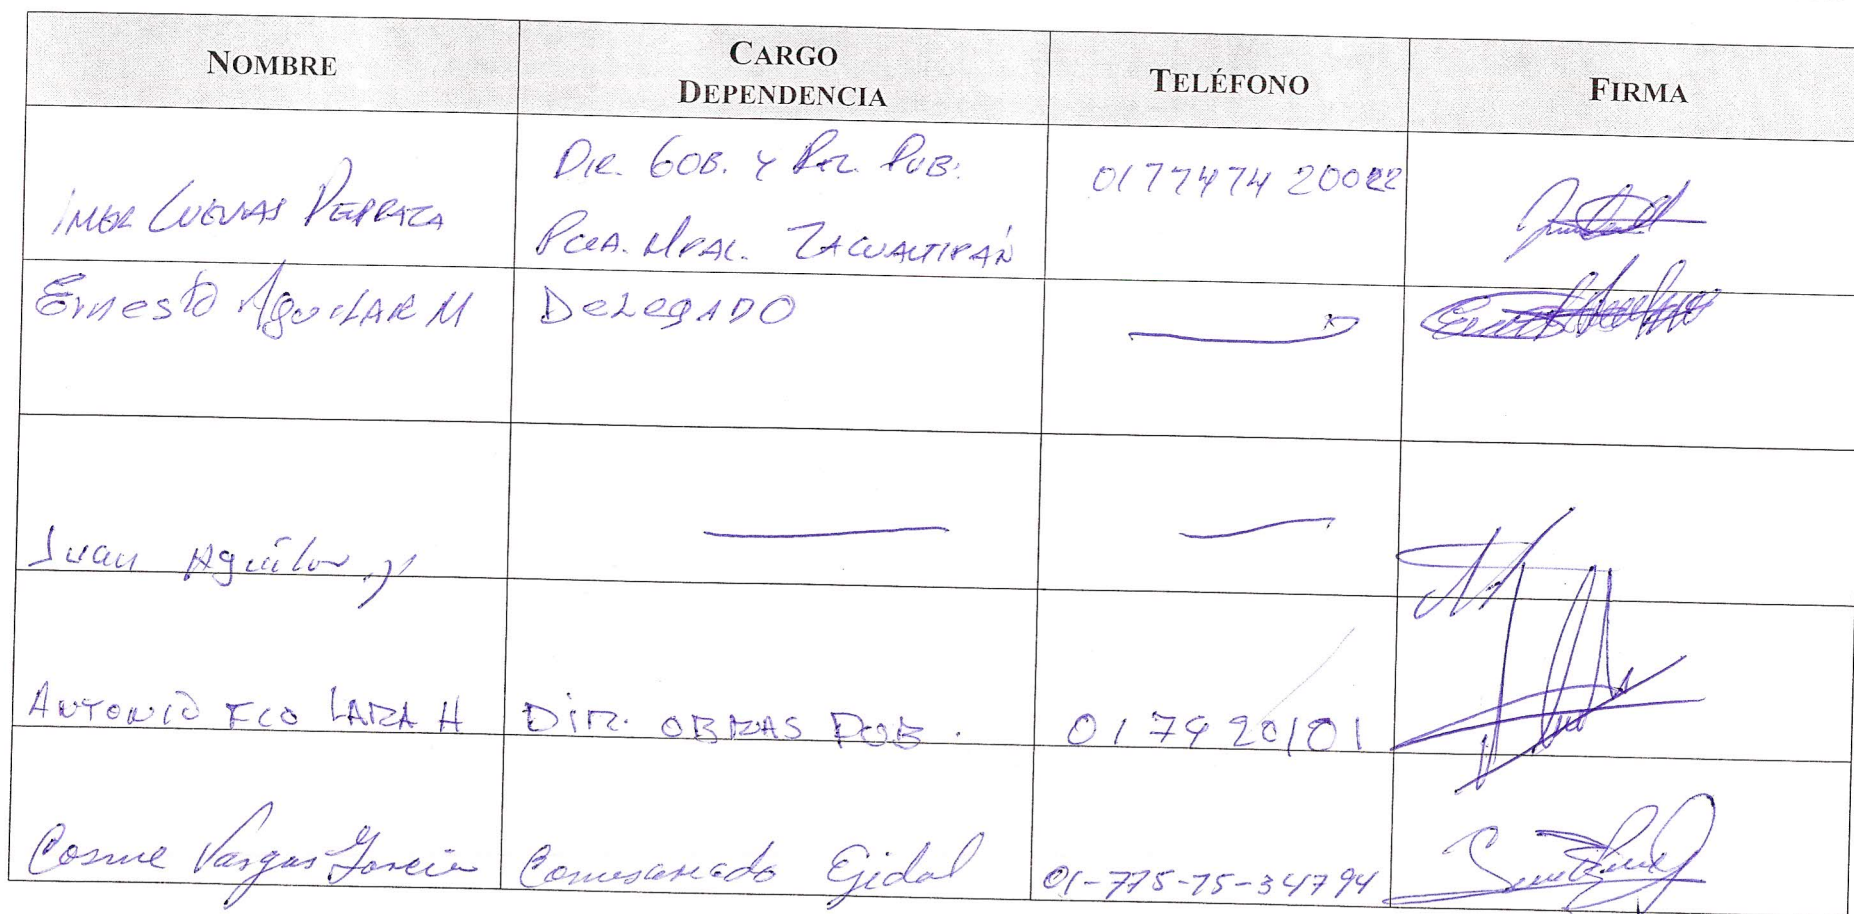 NOMBRE
CARGO
DEPENDENCIA
TELÉFONO
FIRMA
IMER CUEVAS PERRAZA
DIR. GOB. Y REL. PUB.
PCIA. MPAL. ZACUALTIPÁN
0177474 20022
Ernesto AguiLAR M
DeLegADO
Juan Aguilar
ANTONIO FCO LARA H
DIR. OBRAS PUB.
017420101
Cosme Vargas García
Comisariado Ejidal
01-775-75-34794